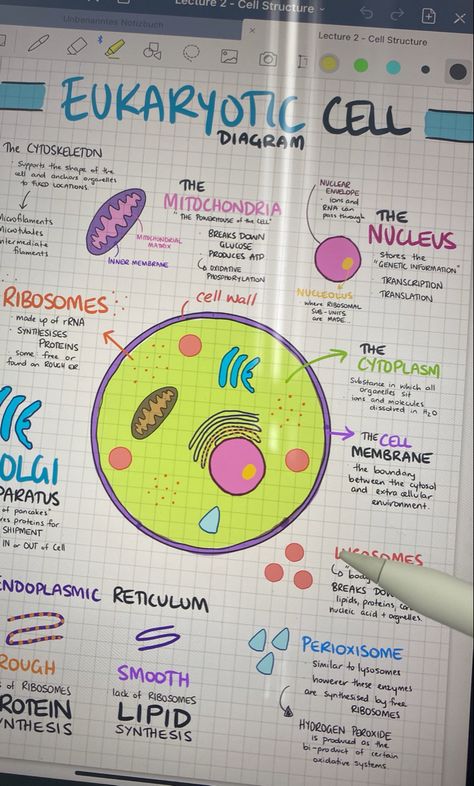 Lecture 2 - Cell Structure
Unbenanntes Notizbuch
Lecture 2 - Cell Structure
EUKARYOTIC CELL
DIAGRAM
The CYTOSKELETON
Supports the shape of the
cell and anchors organelles
to fixed LOCATIONS.
Microfilaments
Microtubules
Intermediate
filaments
THE
MITOCHONDRIA
"THE POWERHOUSE of the CELL"
BREAKS DOWN
GLUCOSE
PRODUCES ATP
OXIDATIVE
PHOSPHORYLATION
MITOCHONDRIAL
MATRIX
INNER MEMBRANE
NUCLEAR
ENVELOPE
ions and
RNA can
pass through
THE
NUCLEUS
stores the
"GENETIC INFORMATION"
TRANSCRIPTION
TRANSLATION
NUCLEOLUS
where RIBOSOMAL
SUB-UNITS
are MADE
RIBOSOMES
made up of rRNA
SYNTHESISES
PROTEINS
some free or
found on ROUGH ER.
cell wall
THE
CYTOPLASM
Substance in which all
organelles sit
ions and molecules
dissolved in H2O
THE CELL
MEMBRANE
the boundary
between the cytosol
and extra cellular
environment.
OLGI
PARATUS
of pancakes"
res proteins for
SHIPMENT
IN or OUT of Cell
LYSOSOMES
"body
BREAKS DO
lipids, proteins,
nucleic acid + organelles.
ENDOPLASMIC RETICULUM
ROUGH
s of RIBOSOMES
ROTEIN
YNTHESIS
SMOOTH
lack of RIBOSOMES
LIPID
SYNTHESIS
PERIOXISOME
similar to lysosomes
however these enzymes
are synthesised by free
RIBOSOMES
HYDROGEN PEROXIDE
is produced as the
bi-product of certain
oxidative systems.